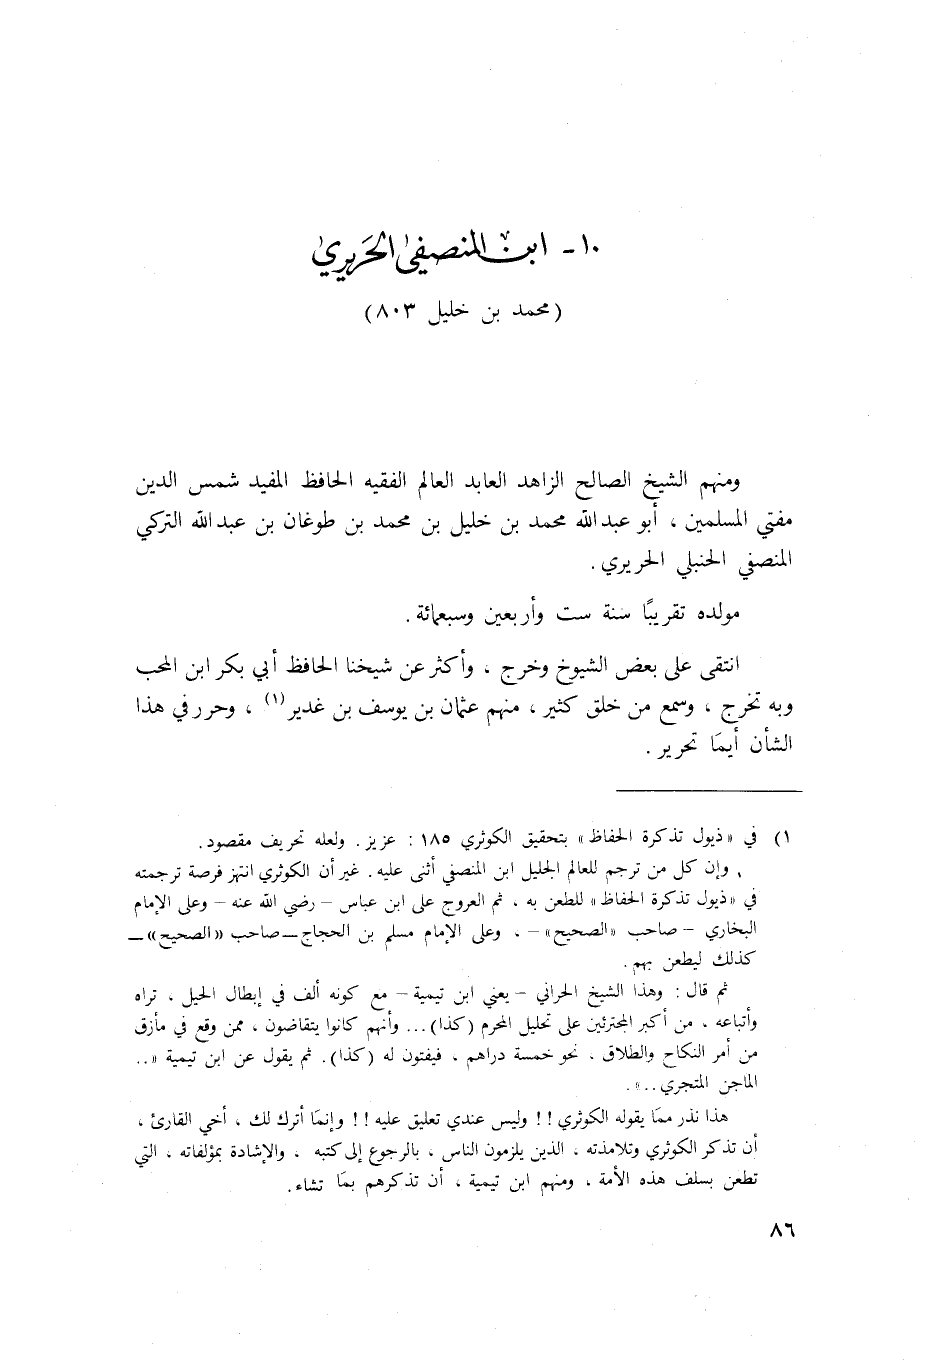 ١٠ - ابن المنصفي الحَريري
(محمد بن خليل ٨٠٣)
ومنهم الشيخ الصالح الزاهد العابد العالم الفقيه الحافظ المفيد شمس الدين
مفتي المسلمين ، أبو عبد الله محمد بن خليل بن محمد بن طوغان بن عبد الله التركي
المنصفي الحنبلي الحريري .
مولده تقريبًا سنة ست وأربعين وسبعمائة .
انتقى على بعض الشيوخ وخرج ، وأكثر عن شيخنا الحافظ أبي بكر ابن المحب
وبه تخرج ، وسمع من خلق كثير ، منهم عثمان بن يوسف بن غدير(١) ، وحرر في هذا
الشأن أيمَا تحرير .
١) في «ذيول تذكرة الحفاظ» بتحقيق الكوثري ١٨٥ : عزيز . ولعله تحريف مقصود .
، وإن كل من ترجم للعالم الجليل ابن المنصفي أثنى عليه . غير أن الكوثري انتهز فرصة ترجمته
في «ذيول تذكرة الحفاظ» للطعن به ، ثم العروج على ابن عباس - رضي الله عنه - وعلى الإمام
البخاري - صاحب «الصحيح» - ، وعلى الإمام مسلم بن الحجاج - صاحب «الصحيح» -
كذلك ليطعن بهم .
ثم قال : وهذا الشيخ الحراني - يعني ابن تيمية - مع كونه ألف في إبطال الحيل ، تراه
وأتباعه ، من أكبر المجترئين على تحليل المحرم (كذا) ... وأنهم كانوا يتقاضون ، ممن وقع في مأزق
من أمر النكاح والطلاق ، نحو خمسة دراهم ، فيفتون له (كذا) . ثم يقول عن ابن تيمية «..
الماجن المتجري ..» .
هذا نذر ممَا يقوله الكوثري !! وليس عندي تعليق عليه !! وإنمَا أترك لك ، أخي القارئ ،
أن تذكر الكوثري وتلامذته ، الذين يلزمون الناس ، بالرجوع إلى كتبه ، والإشادة بمؤلفاته ، التي
تطعن بسلف هذه الأمة ، ومنهم ابن تيمية ، أن تذكرهم بمَا تشاء .
٨٦